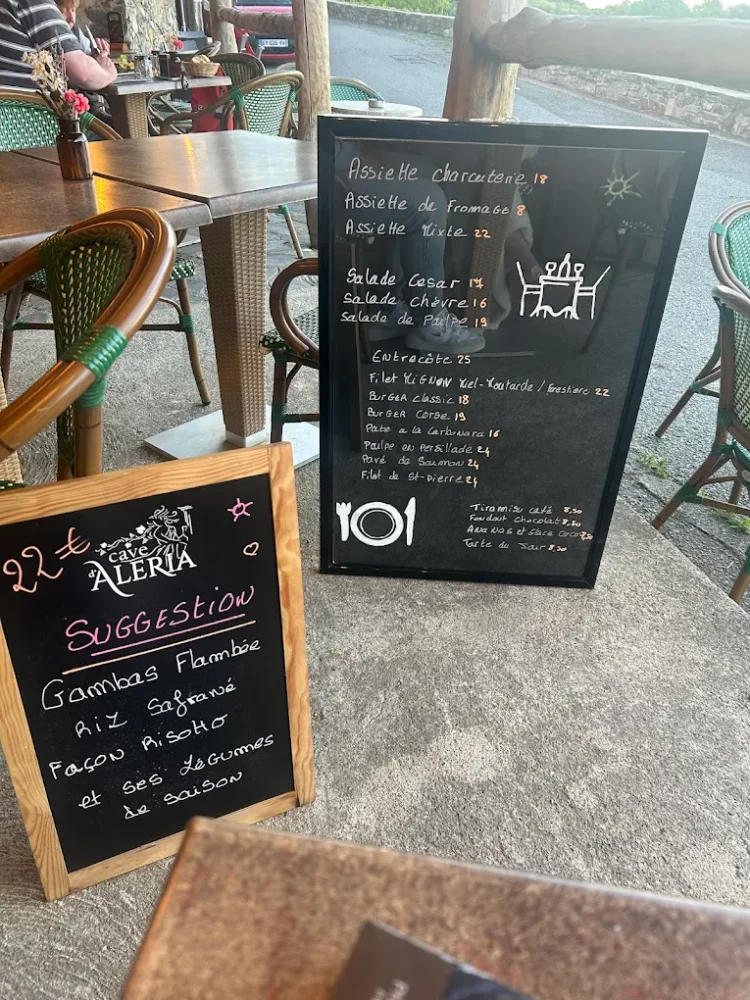 Assiette charcuterie 18
Assiette de Fromage 8
Assiette Mixte 22
Salade Cesar 17
Salade chèvre 16
Salade de Poulpe 19
Entrecôte 25
Filet MIGNON Miel-Moutarde / Forestière 22
BURGER classic 18
BURGER CORSE 19
Pate a la Carbonara 16
Poulpe en Persillade 24
Pavé de Saumon 24
Filet de St-Pierre 24
Tiramisu café 8,50
Fondant Chocolat 8,50
ANANAS et Glace coco 7,50
Tarte du Jour 8,50
22 €
cave
d'ALERIA
SUGGESTION
Gambas Flambée
RIZ Safrané
Façon Risotto
et ses Légumes
de saison